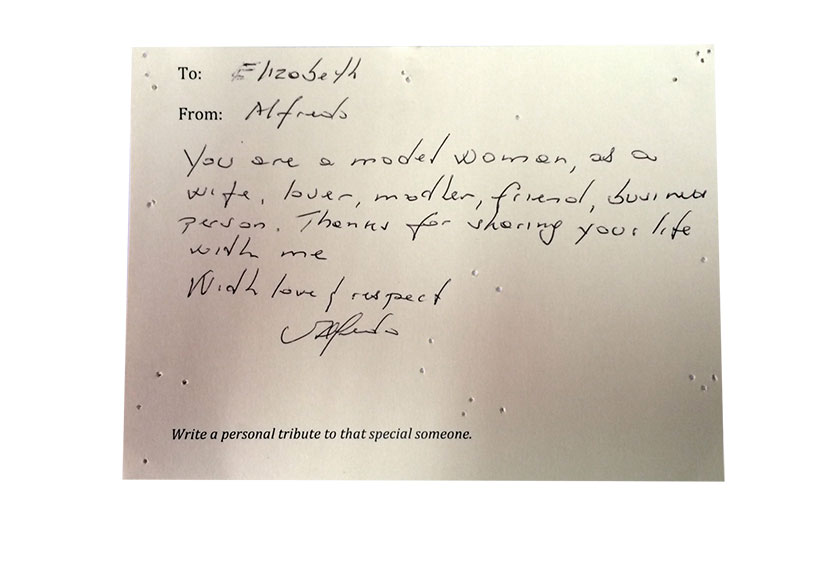 To: Elizabeth
From: Alfredo
You are a model woman, as a
wife, lover, mother, friend, business
person. Thanks for sharing your life
with me
With love & respect
Alfredo
Write a personal tribute to that special someone.